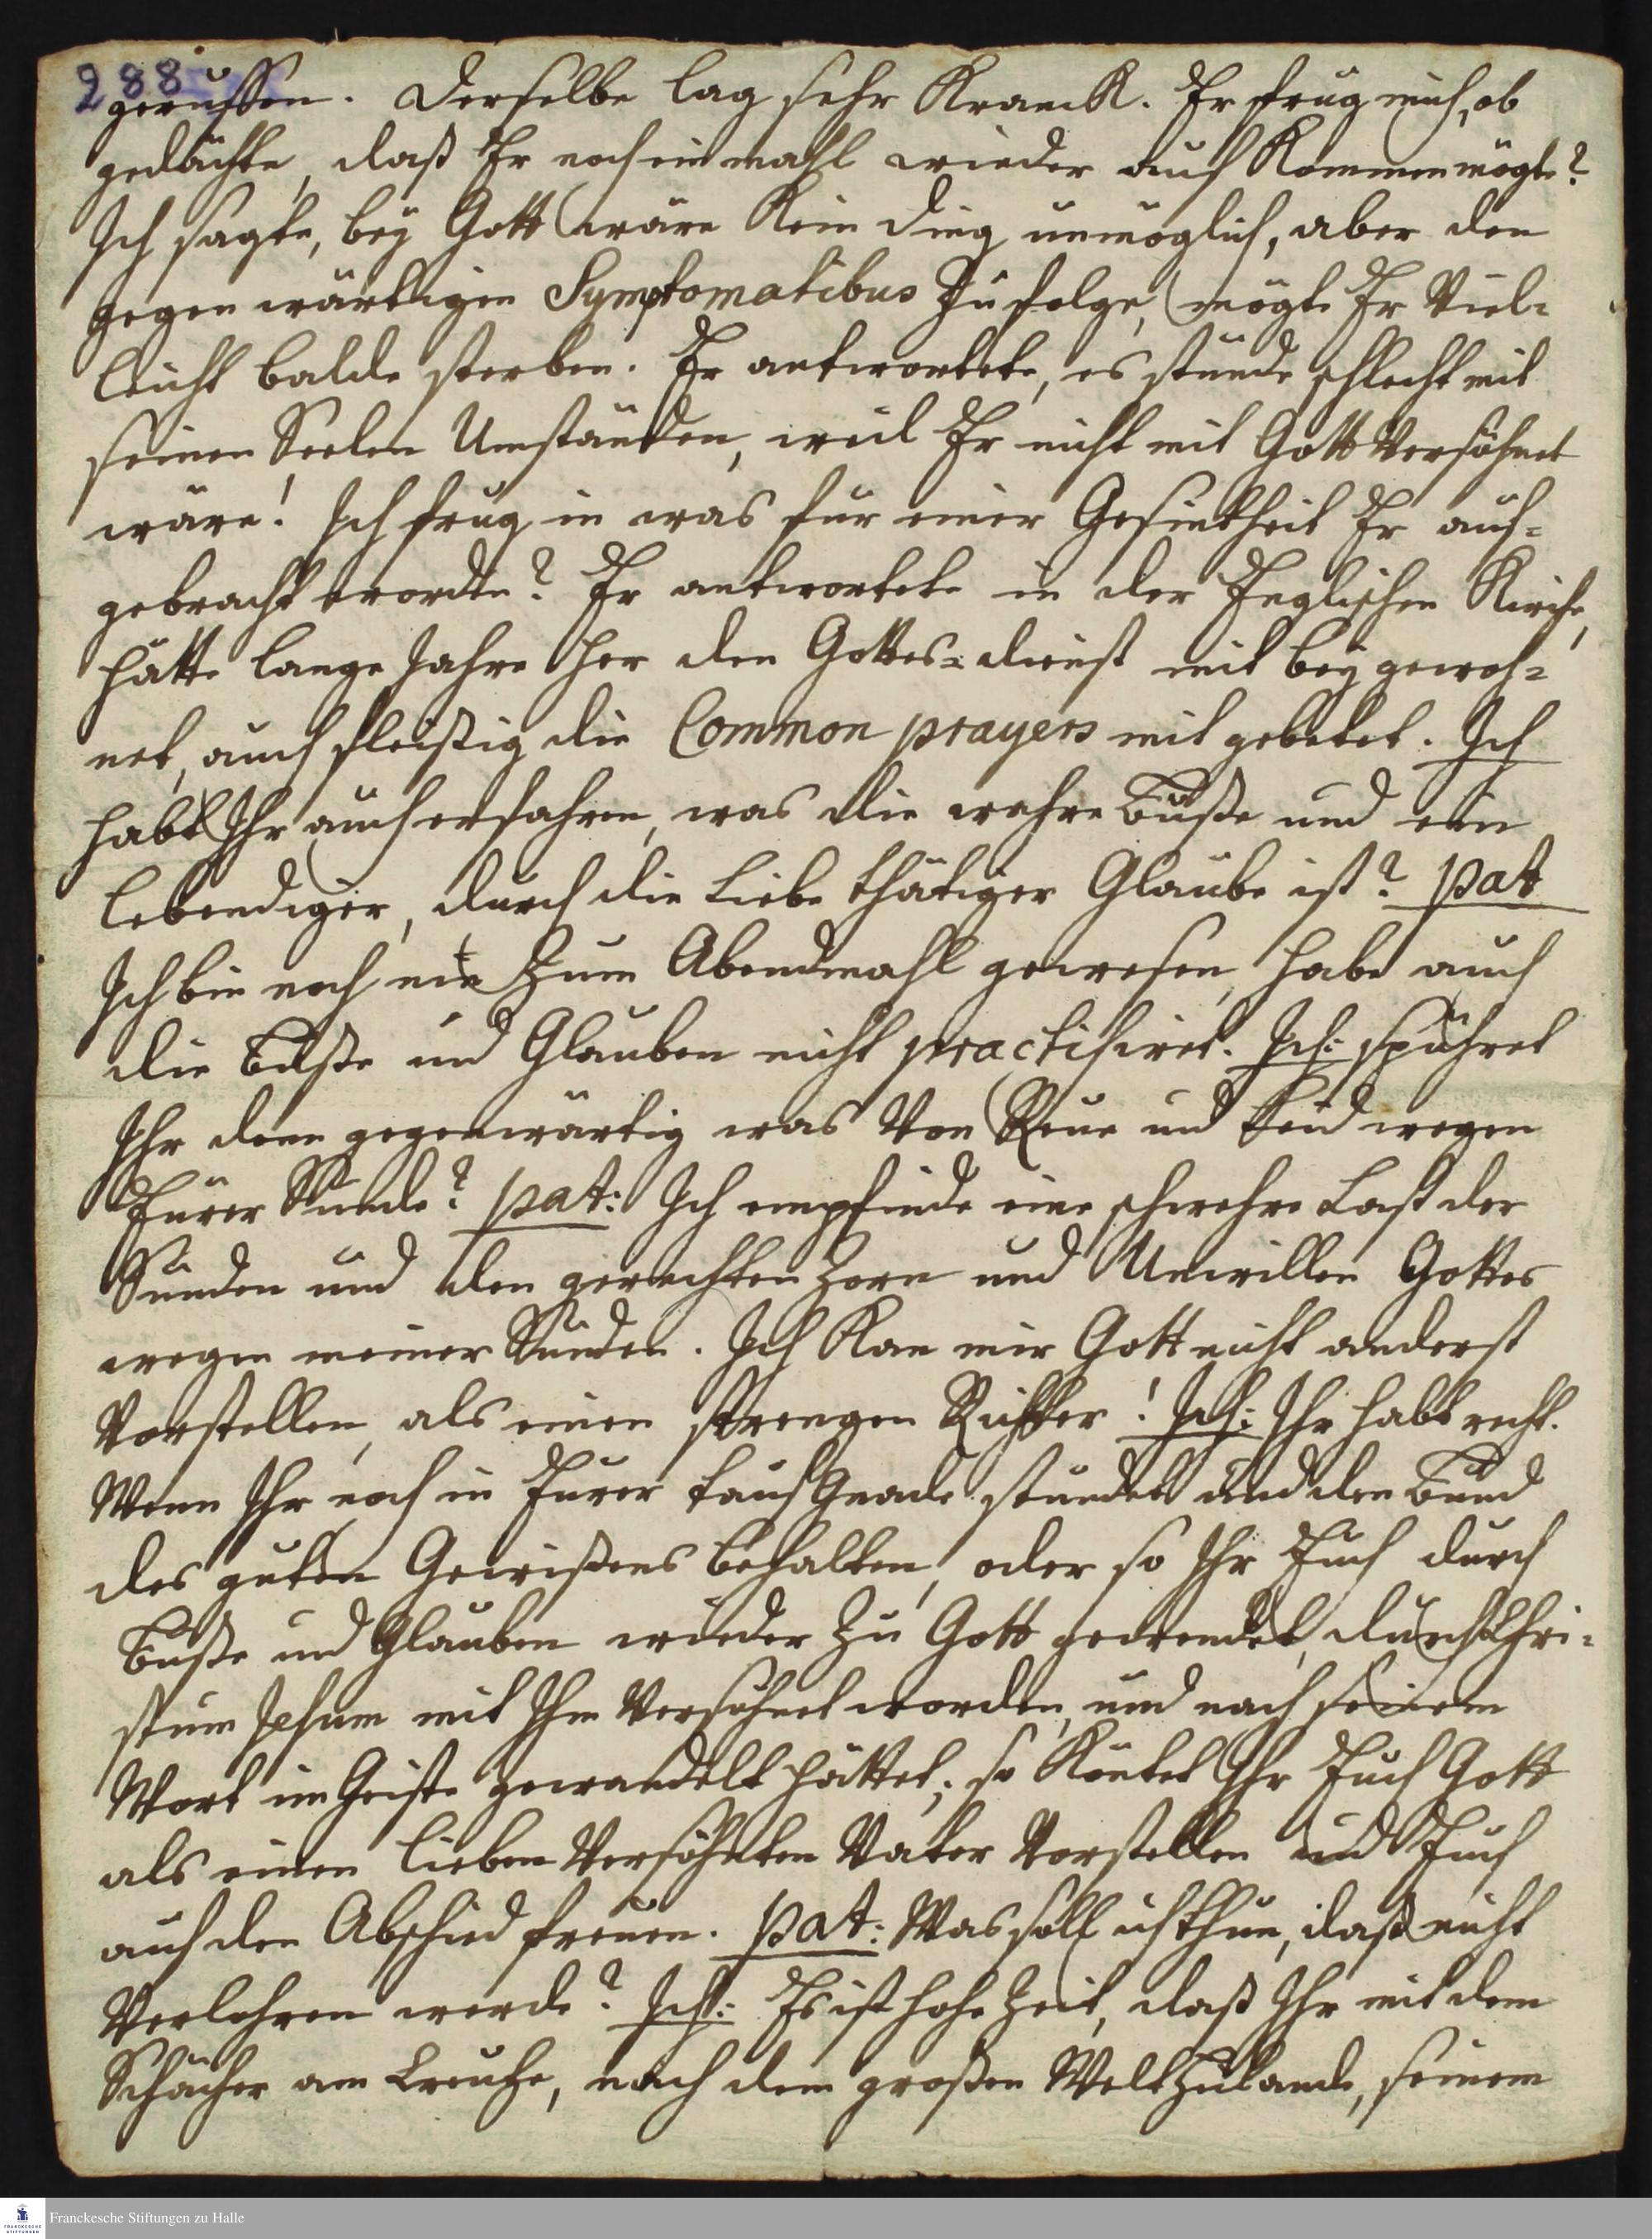 288
geruffen. Derselbe lag sehr Kranck. Er frug mich, ob
gedächte, daß Er noch einmahl wieder auf Kommen mögte?
Ich sagte, bey Gott wäre Kein Ding unmöglich, aber den
gegenwärtigen Symptomatibus Zufolge, mögte Er Viel=
leicht balde sterben. Er antwortete, es stünde schlecht mit
seinen Seelen Umständen, weil Er nicht mit Gott Versöhnet
wäre! Ich frug in was für einer Gesintheit Er auf=
gebracht worden? Er antwortete in der Englischen Kirche,
hätte lange Jahre her den Gottes=dienst mit bey gewoh=
net, auch fleißig die Common prayers mit gebetet. Ich
habt Ihr auch erfahren, was die wahre Buße und ein
lebendiger, durch die Liebe thätiger Glaube ist? pat
Ich bin noch nie Zum Abendmahl gewesen, habe auch
die Buße und Glauben nicht practisiret. Ich: spühret
Ihr denn gegenwärtig was Von Reue und Leid wegen
Eurer Sünde? pat: Ich empfinde eine schwehre Last der
Sünden und den gerechten Zorn und Unwillen Gottes
wegen meiner Sünden. Ich Kan mir Gott nicht anderst
Vorstellen, als einen strengen Richter! Ich: Ihr habt recht.
Wenn Ihr noch in Eurer Tauf Gnade stündet und den Bund
des guten Gewißens behalten, oder so Ihr Euch durch
Buße und Glauben wieder Zu Gott gewendet, durch Chri=
stum Jesum mit Ihm Versöhnet worden, und nach seinem
Wort im Geiste gewandelt hättet; so Köntet Ihr Euch Gott
als einen lieben Versöhnten Vater Vorstellen und Euch
auf den Abschied freuen. pat: Was soll ich thun, daß nicht
Verlohren werde? Ich: Es ist hohe Zeit, daß Ihr mit dem
Schächer am Creutze, nach dem großen Weltheilande, seinem
Franckesche Stiftungen zu Halle